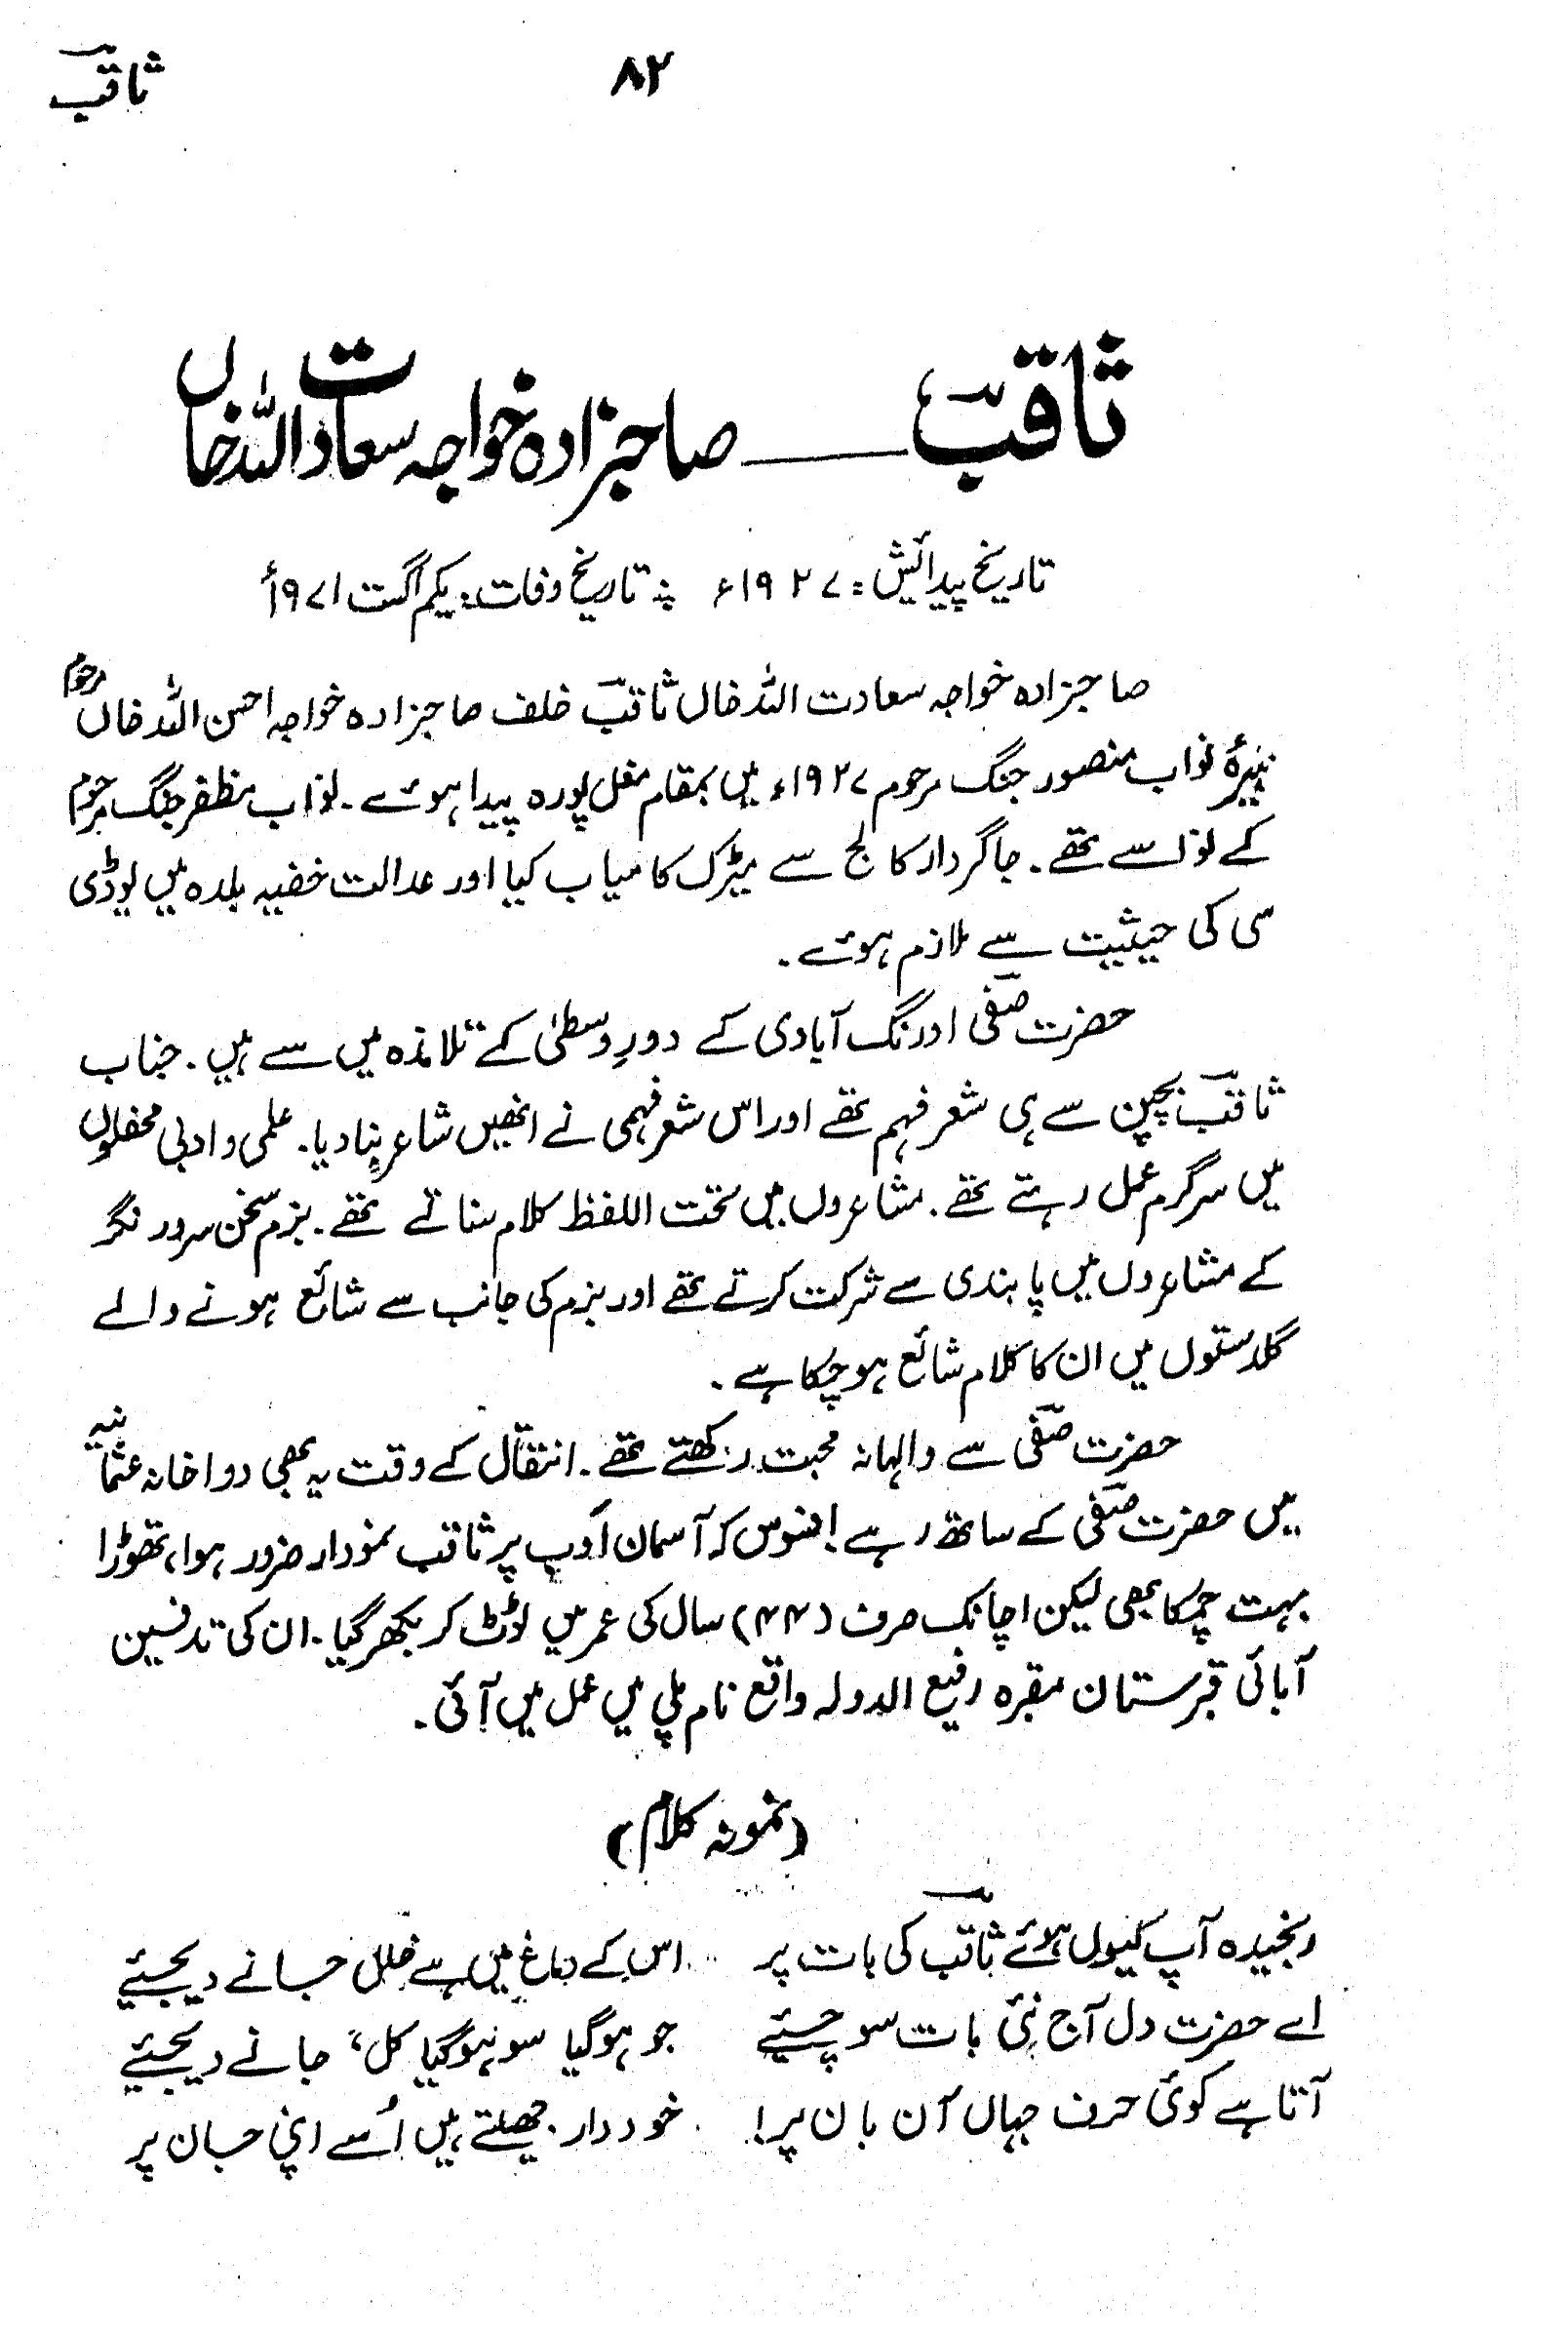 ثاقبؔ
۸۲
ثاقبؔ ــــــ صاحبزادہ خواجہ سعادت اللہ خاں
تاریخ پیدائش: ۱۹۲۷ء ؞ تاریخ وفات: یکم اگست ۱۹۷۱ء
صاحبزادہ خواجہ سعادت اللہ خاں ثاقبؔ خلف صاحبزادہ خواجہ احسن اللہ خاں مرحوم
نبیرۂ نواب منصور جنگ مرحوم ۱۹۲۷ء میں بمقام مغل پورہ پیدا ہوئے۔ نواب مظفر جنگ مرحوم
کے نواسے تھے۔ جاگردار کالج سے میٹرک کامیاب کیا اور عدالت خفیہ بلدہ میں یوڈی
سی کی حیثیت سے ملازم ہوئے۔
حضرت صفیؔ اورنگ آبادی کے دورِ وسطیٰ کے تلامذہ میں سے ہیں۔ جناب
ثاقبؔ بچپن سے ہی شعر فہم تھے اور اس شعر فہمی نے انھیں شاعر بنا دیا۔ علمی و ادبی محفلوں
میں سرگرم عمل رہتے تھے۔ مشاعروں میں تحت اللفظ کلام سناتے تھے۔ بزم سخن سرور نگر
کے مشاعروں میں پابندی سے شرکت کرتے تھے اور بزم کی جانب سے شائع ہونے والے
گلدستوں میں ان کا کلام شائع ہو چکا ہے۔
حضرت صفیؔ سے والہانہ محبت رکھتے تھے۔ انتقال کے وقت یہ بھی دواخانہ عثمانیہ
میں حضرت صفیؔ کے ساتھ رہے! افسوس کہ آسمان اَدب پر ثاقب نمودار ضرور ہوا، تھوڑا
بہت چمکا بھی لیکن اچانک صرف (۴۴) سال کی عمر میں ٹوٹ کر بکھر گیا۔ ان کی تدفین
آبائی قبرستان مقبرہ رفیع الدولہ واقع نام پلی میں عمل میں آئی۔
(نمونہ کلام)
رنجیدہ آپ کیوں ہوئے ثاقبؔ کی بات پر اس کے دماغ میں ہے خلل جانے دیجئیے
اے حضرت دل آج نئی بات سوچئیے جو ہوگیا سو ہوگیا کل، جانے دیجئیے
آتا ہے کوئی حرف جہاں آن بان پر! خوددار جھیلتے ہیں اُسے اپنی جان پر